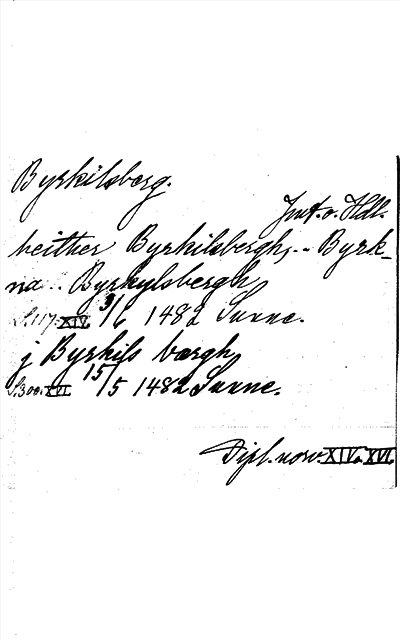 Byrkilsberg.
Jmt. o. Hdl.
heither Byrkilsbergh,.. Byrk-
na .. Byrkylsbergh
S.117. XIV. 3/6 1482 Sunne.
j Byrkils bærgh
S.300. XVI 15/5 1482 Sunne.
Dipl. norv. XIV o. XVI.